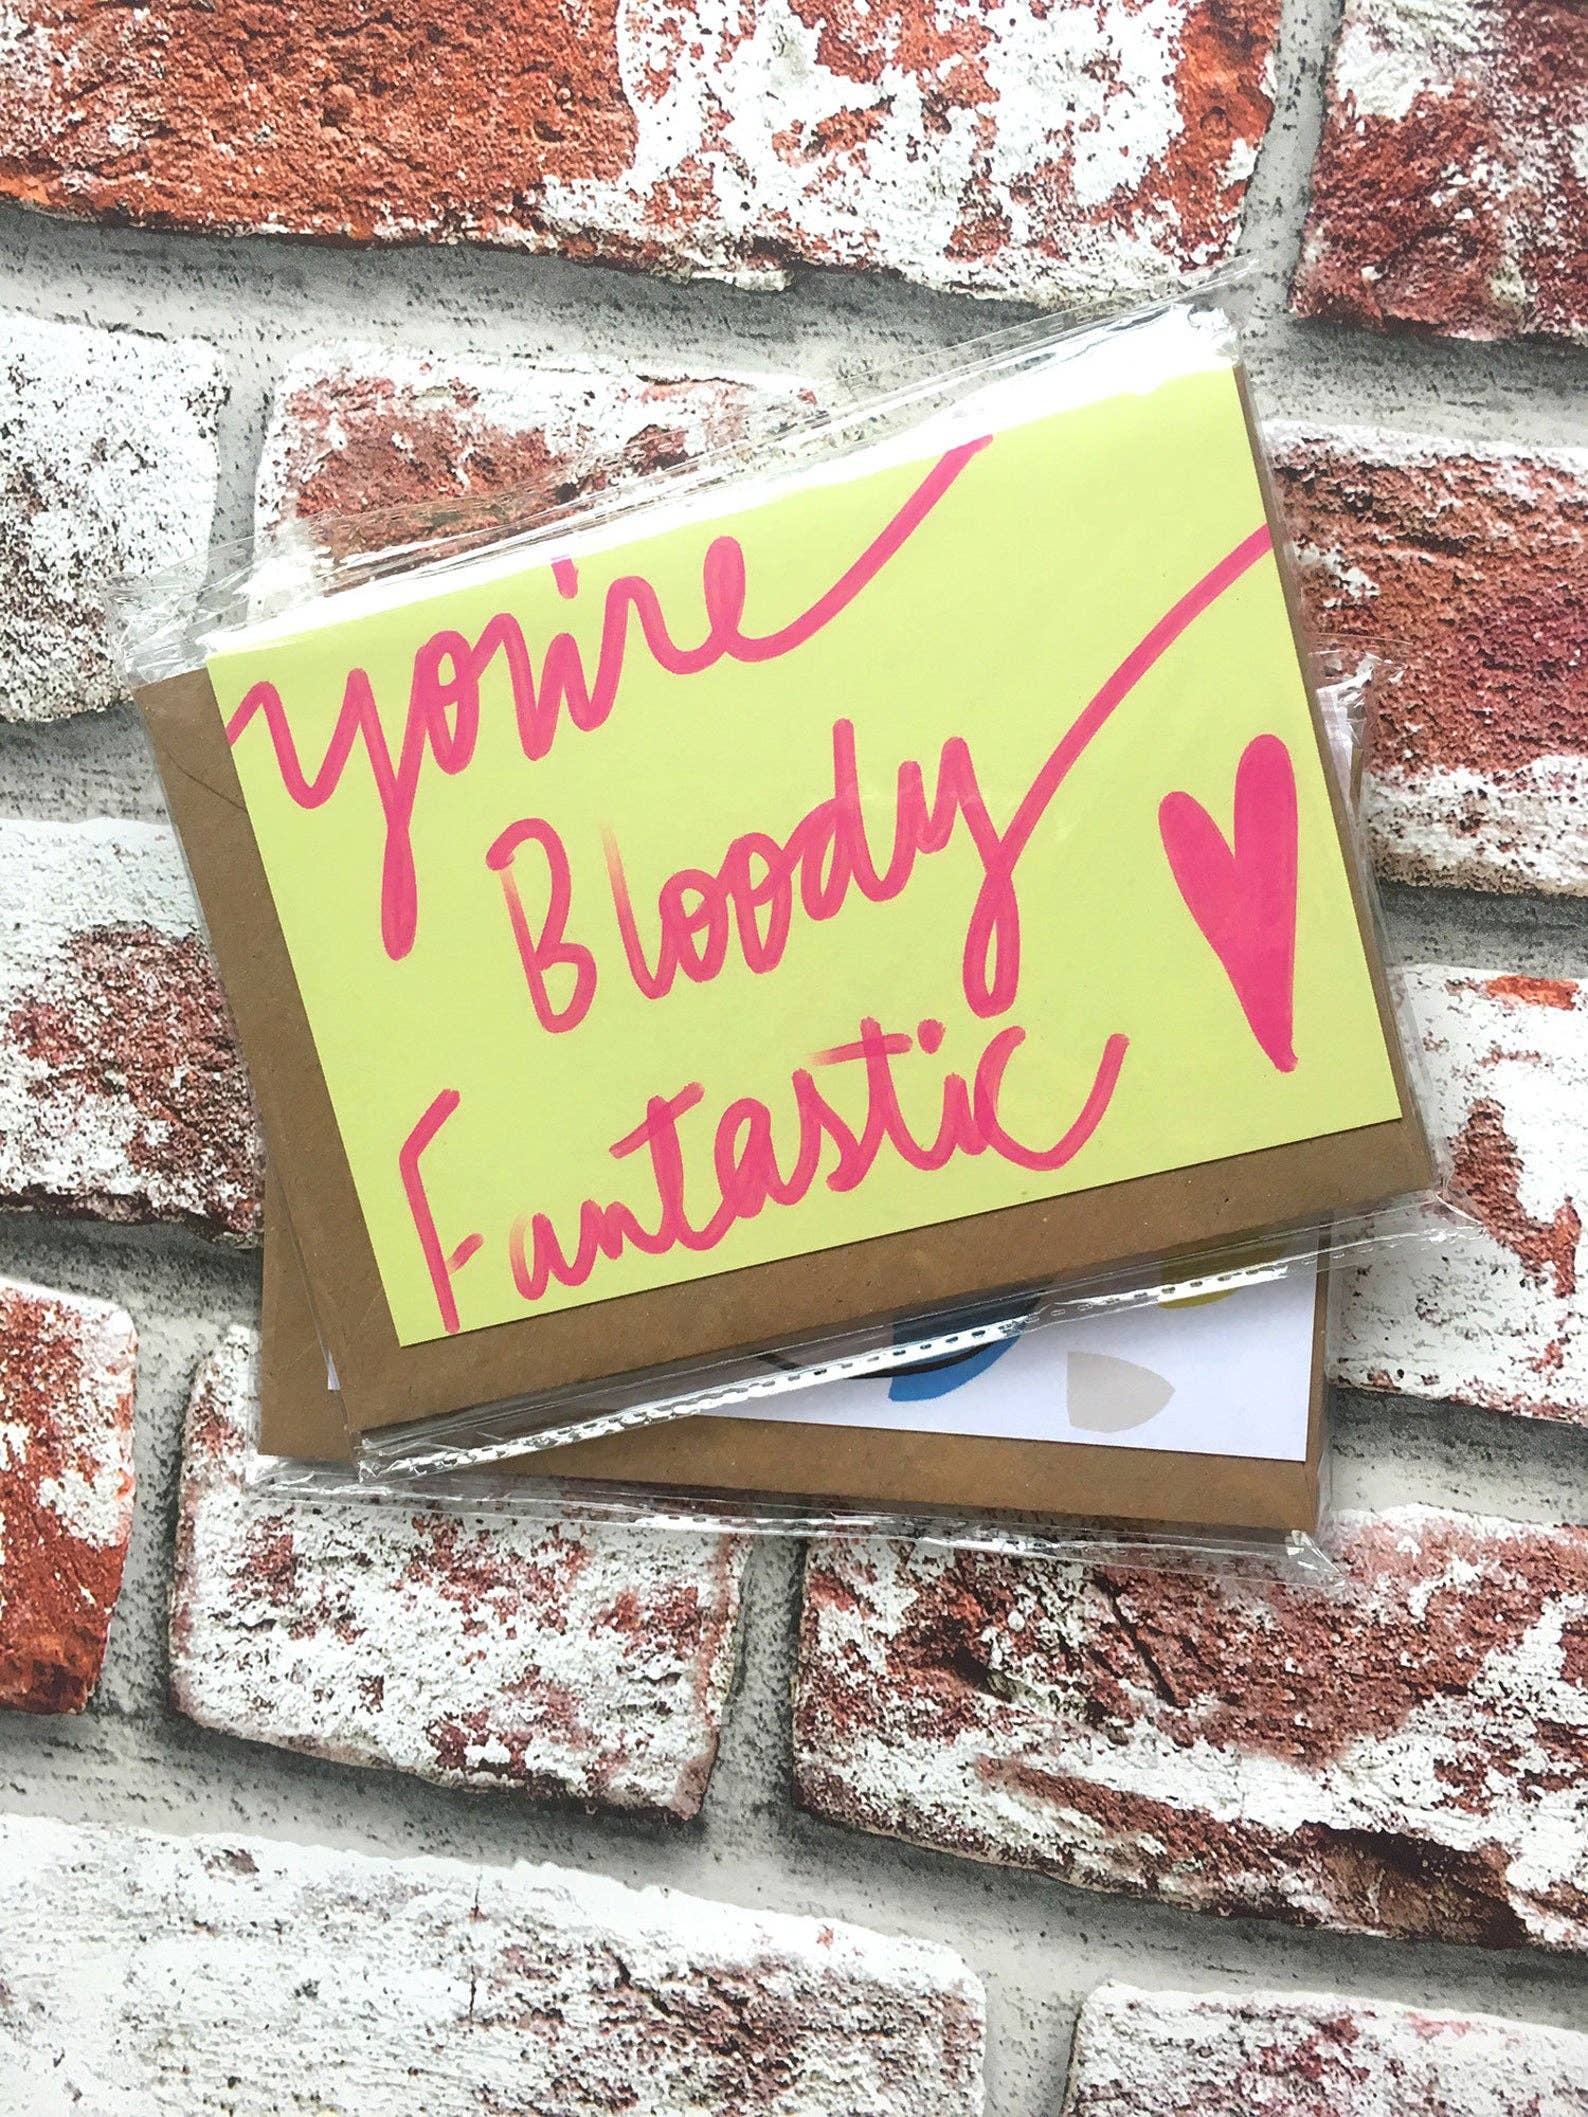 you're
Bloody
Fantastic